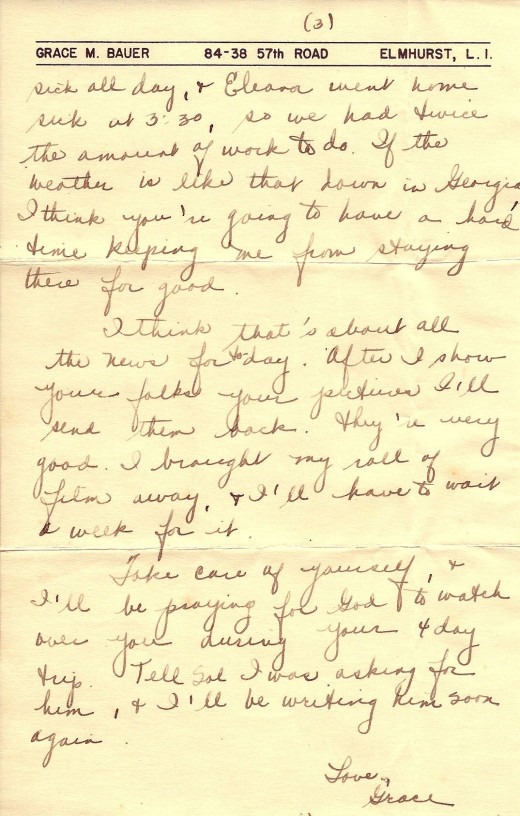 (3)
GRACE M. BAUER 84-38 57th ROAD ELMHURST, L. I.
sick all day, & Eleanor went home
sick at 3:30, so we had twice
the amount of work to do. If the
weather is like that down in Georgia
I think you're going to have a hard
time keeping me from staying
there for good.
I think that's about all
the news for to-day. After I show
your folks your pictures I'll
send them back. They're very
good. I brought my roll of
film away, & I'll have to wait
a week for it.
Take care of yourself, &
I'll be praying for God to watch
over you during your 4 day
trip. Tell Sol I was asking for
him, & I'll be writing him soon
again.
Love,
Grace